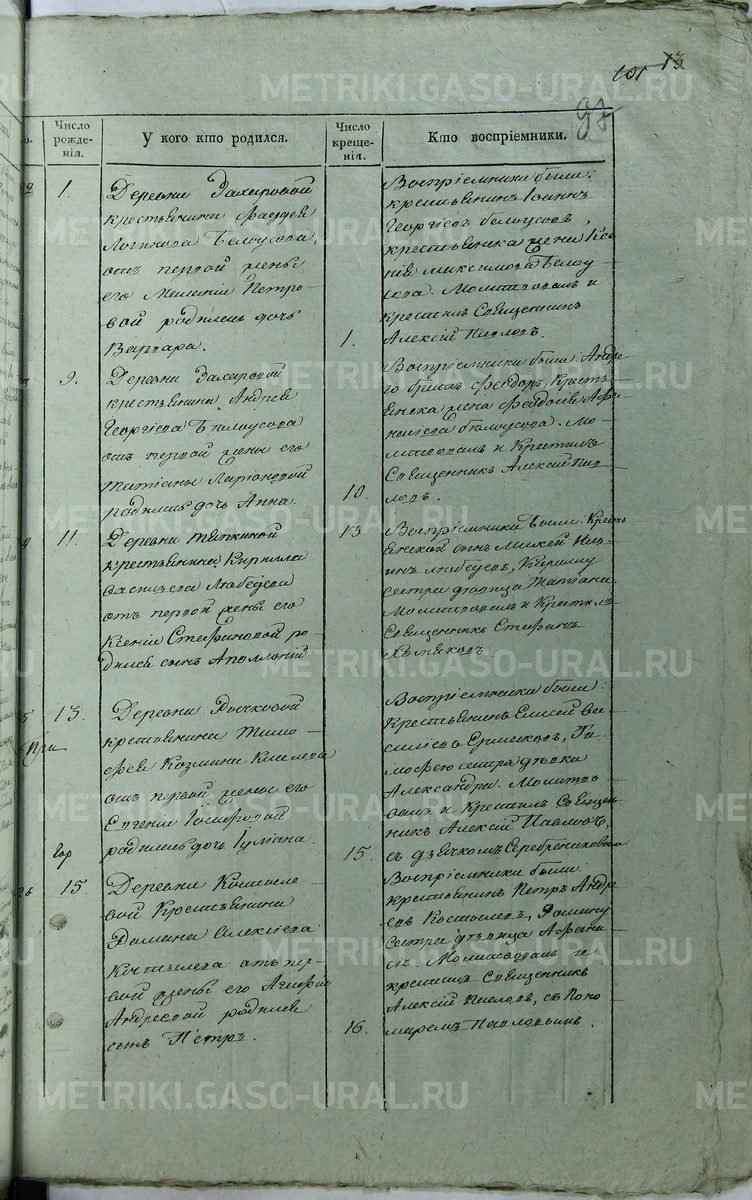 101 13
97
Число рожде-нія.
У кого кто родился.
Число креще-нія.
Кто воспріемники.
1.
Деревни Захаровой
крестьянина Фаддея
Логинова Белоусова,
отъ первой жены
его Меланіи Петро-
вой родилась дочь
Варвара.
1.
Воспріемники были:
крестьянинъ Іоаннъ
Георгіевъ Белоусовъ,
крестьянска жена Ксе
нія Максимова Белоу
сова. Молитвовалъ и
крестилъ Священникъ
Алексій Павловъ.
9.
Деревни Захаровой
крестьянина Андрея
Георгіева Белоусова
отъ первой жены его
Татіаны Ларіоновой
родилась дочь Анна.
10.
Воспріемники были: Андре
го братъ Феодоръ, Кресть
янска жена Феодосія Афа
насіева Белоусова. Мо-
литвовалъ и Крестилъ
Священникъ Алексій Пав-
ловъ.
11.
Деревни
крестьянина Кирилла
Васильева
отъ первой жены его
Ксеніи Стефановой ро-
дился сынъ Аполлоній
13
Воспріемники были: Кресть
янской сынъ Михей
Кирилу
сестра дѣвица Татіана.
Молитвовалъ и Крестилъ
Священникъ Стефанъ
Хомяковъ
При
13.
Деревни
крестьянина Тимо-
фея Козмина Киселева
отъ первой жены его
Евгеніи Іосифовой
родилась дочь Іуліана.
15.
Воспріемники были:
Крестьянинъ Елисей Ва
силіевъ Ермаковъ, Ти
мофею сестра дѣвка
Александра. Молитво
валъ и Крестилъ Священ
никъ Алексій Павловъ,
съ дьячкомъ Серебрениковымъ
26
15.
Деревни Костыле-
вой Крестьянина
Романа Алексіева
Костылева отъ пер-
вой жены его Агафіи
Андреевой родился
сынъ Петръ.
16.
Воспріемники были:
крестьянинъ Петръ Андре
евъ Костылевъ, Роману
сестра дѣвица Афана
сія. Молитвовалъ и
крестилъ Священникъ
Алексій Павловъ, съ Поно
маремъ Павловымъ.
METRIKI.GASO-URAL.RU